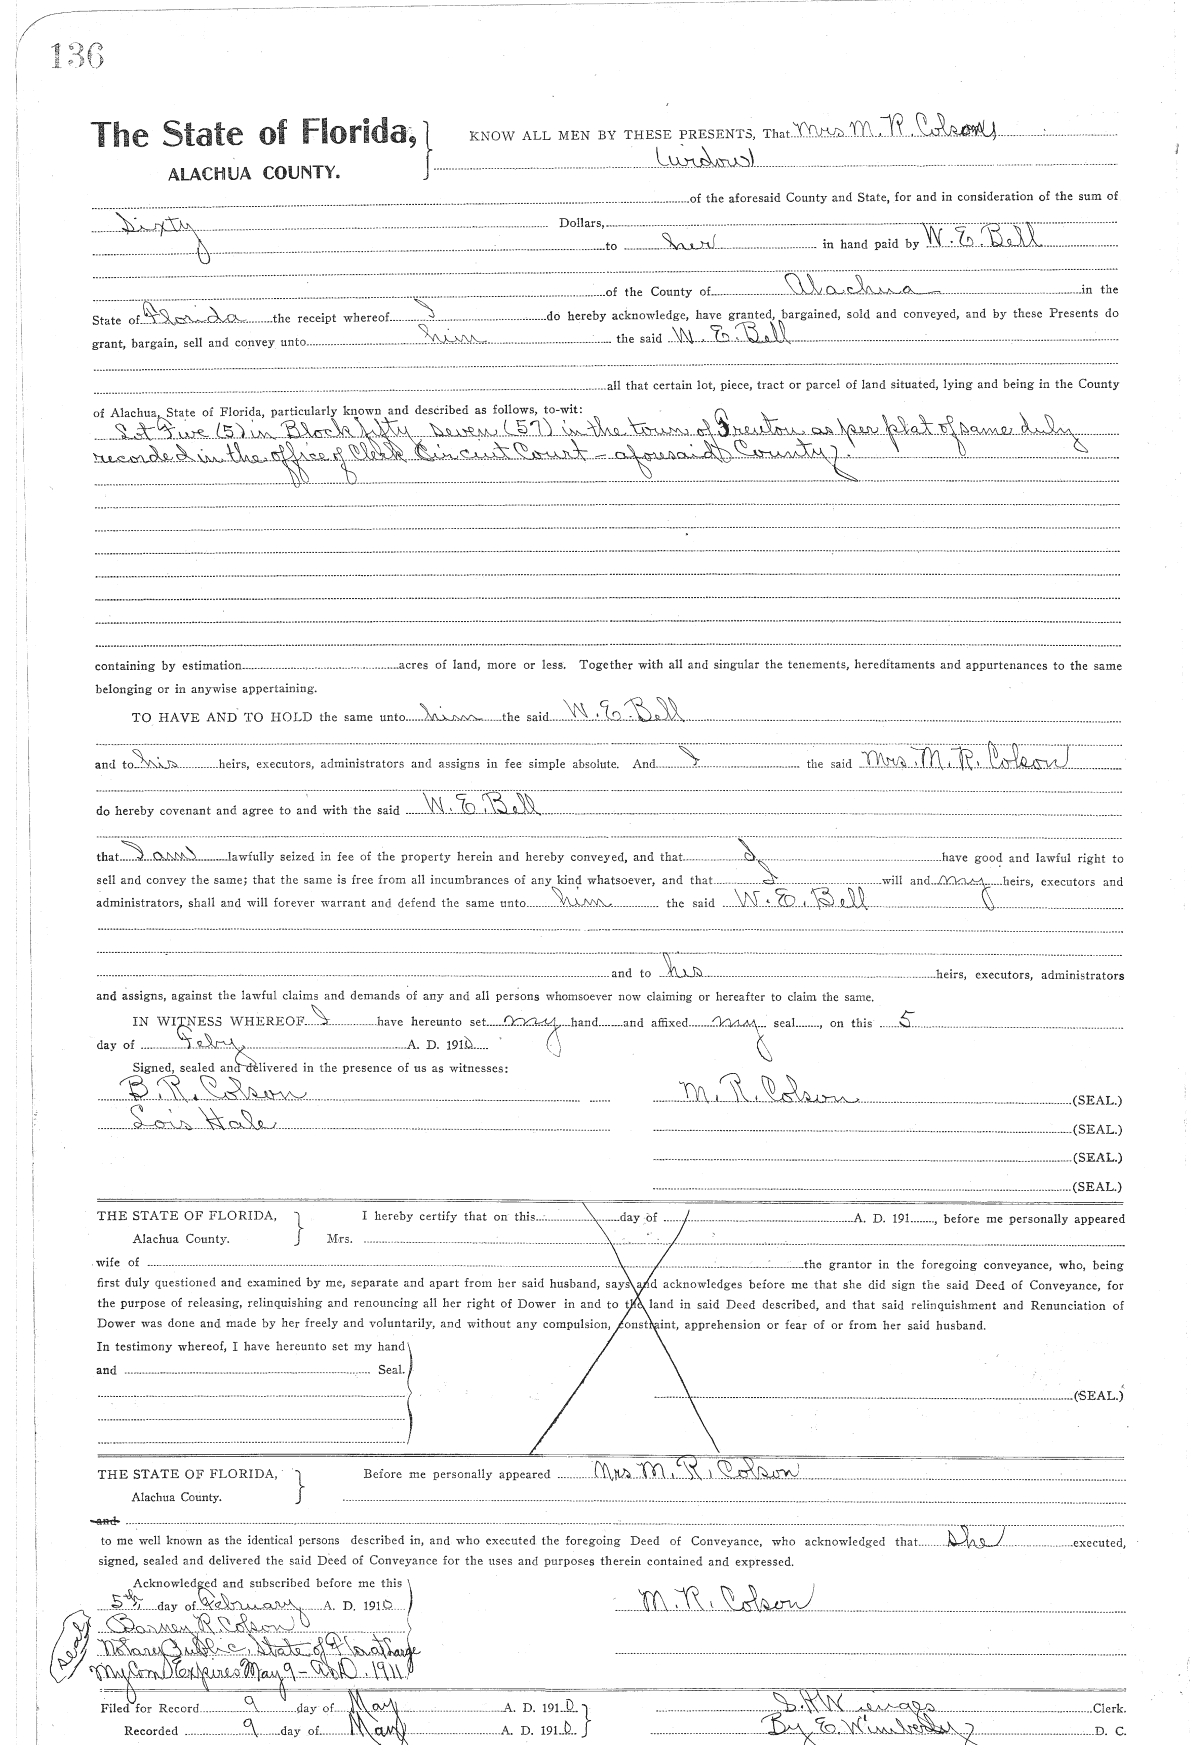 136
The State of Florida, KNOW ALL MEN BY THESE PRESENTS, That Mrs M. R. Colson,
ALACHUA COUNTY. (widow)
of the aforesaid County and State, for and in consideration of the sum of
Sixty Dollars,
to her in hand paid by W. E. Bell
of the County of Alachua in the
State of Florida the receipt whereof I do hereby acknowledge, have granted, bargained, sold and conveyed, and by these Presents do
grant, bargain, sell and convey unto him the said W. E. Bell
all that certain lot, piece, tract or parcel of land situated, lying and being in the County
of Alachua, State of Florida, particularly known and described as follows, to-wit:
Lot Five (5) in Block fifty seven (57) in the town of Trenton as per plat of same duly
recorded in the office of Clerk Circuit Court - aforesaid County.
containing by estimation acres of land, more or less. Together with all and singular the tenements, hereditaments and appurtenances to the same
belonging or in anywise appertaining.
TO HAVE AND TO HOLD the same unto him the said W. E. Bell
and to his heirs, executors, administrators and assigns in fee simple absolute. And I the said Mrs. M. R. Colson
do hereby covenant and agree to and with the said W. E. Bell
that I am lawfully seized in fee of the property herein and hereby conveyed, and that I have good and lawful right to
sell and convey the same; that the same is free from all incumbrances of any kind whatsoever, and that I will and my heirs, executors and
administrators, shall and will forever warrant and defend the same unto him the said W. E. Bell
and to his heirs, executors, administrators
and assigns, against the lawful claims and demands of any and all persons whomsoever now claiming or hereafter to claim the same.
IN WITNESS WHEREOF I have hereunto set my hand and affixed my seal, on this 5
day of Feby A. D. 1910
Signed, sealed and delivered in the presence of us as witnesses:
B. R. Colson M. R. Colson (SEAL.)
Lois Hale (SEAL.)
(SEAL.)
(SEAL.)
THE STATE OF FLORIDA, I hereby certify that on this day of A. D. 191 , before me personally appeared
Alachua County. Mrs.
wife of the grantor in the foregoing conveyance, who, being
first duly questioned and examined by me, separate and apart from her said husband, says and acknowledges before me that she did sign the said Deed of Conveyance, for
the purpose of releasing, relinquishing and renouncing all her right of Dower in and to the land in said Deed described, and that said relinquishment and Renunciation of
Dower was done and made by her freely and voluntarily, and without any compulsion, constraint, apprehension or fear of or from her said husband.
In testimony whereof, I have hereunto set my hand
and Seal.
(SEAL.)
THE STATE OF FLORIDA, Before me personally appeared Mrs M. R. Colson
Alachua County.
and
to me well known as the identical persons described in, and who executed the foregoing Deed of Conveyance, who acknowledged that she executed,
signed, sealed and delivered the said Deed of Conveyance for the uses and purposes therein contained and expressed.
Acknowledged and subscribed before me this
5th day of February A. D. 1910 M. R. Colson
Barney R. Colson
seal Notary Public, State of Fla at Large
My Com Expires May 9 - A.D. 1911
Filed for Record 9 day of May A. D. 1910 S. H Wienges Clerk.
Recorded 9 day of May A. D. 1910 By E. Wimberly D. C.